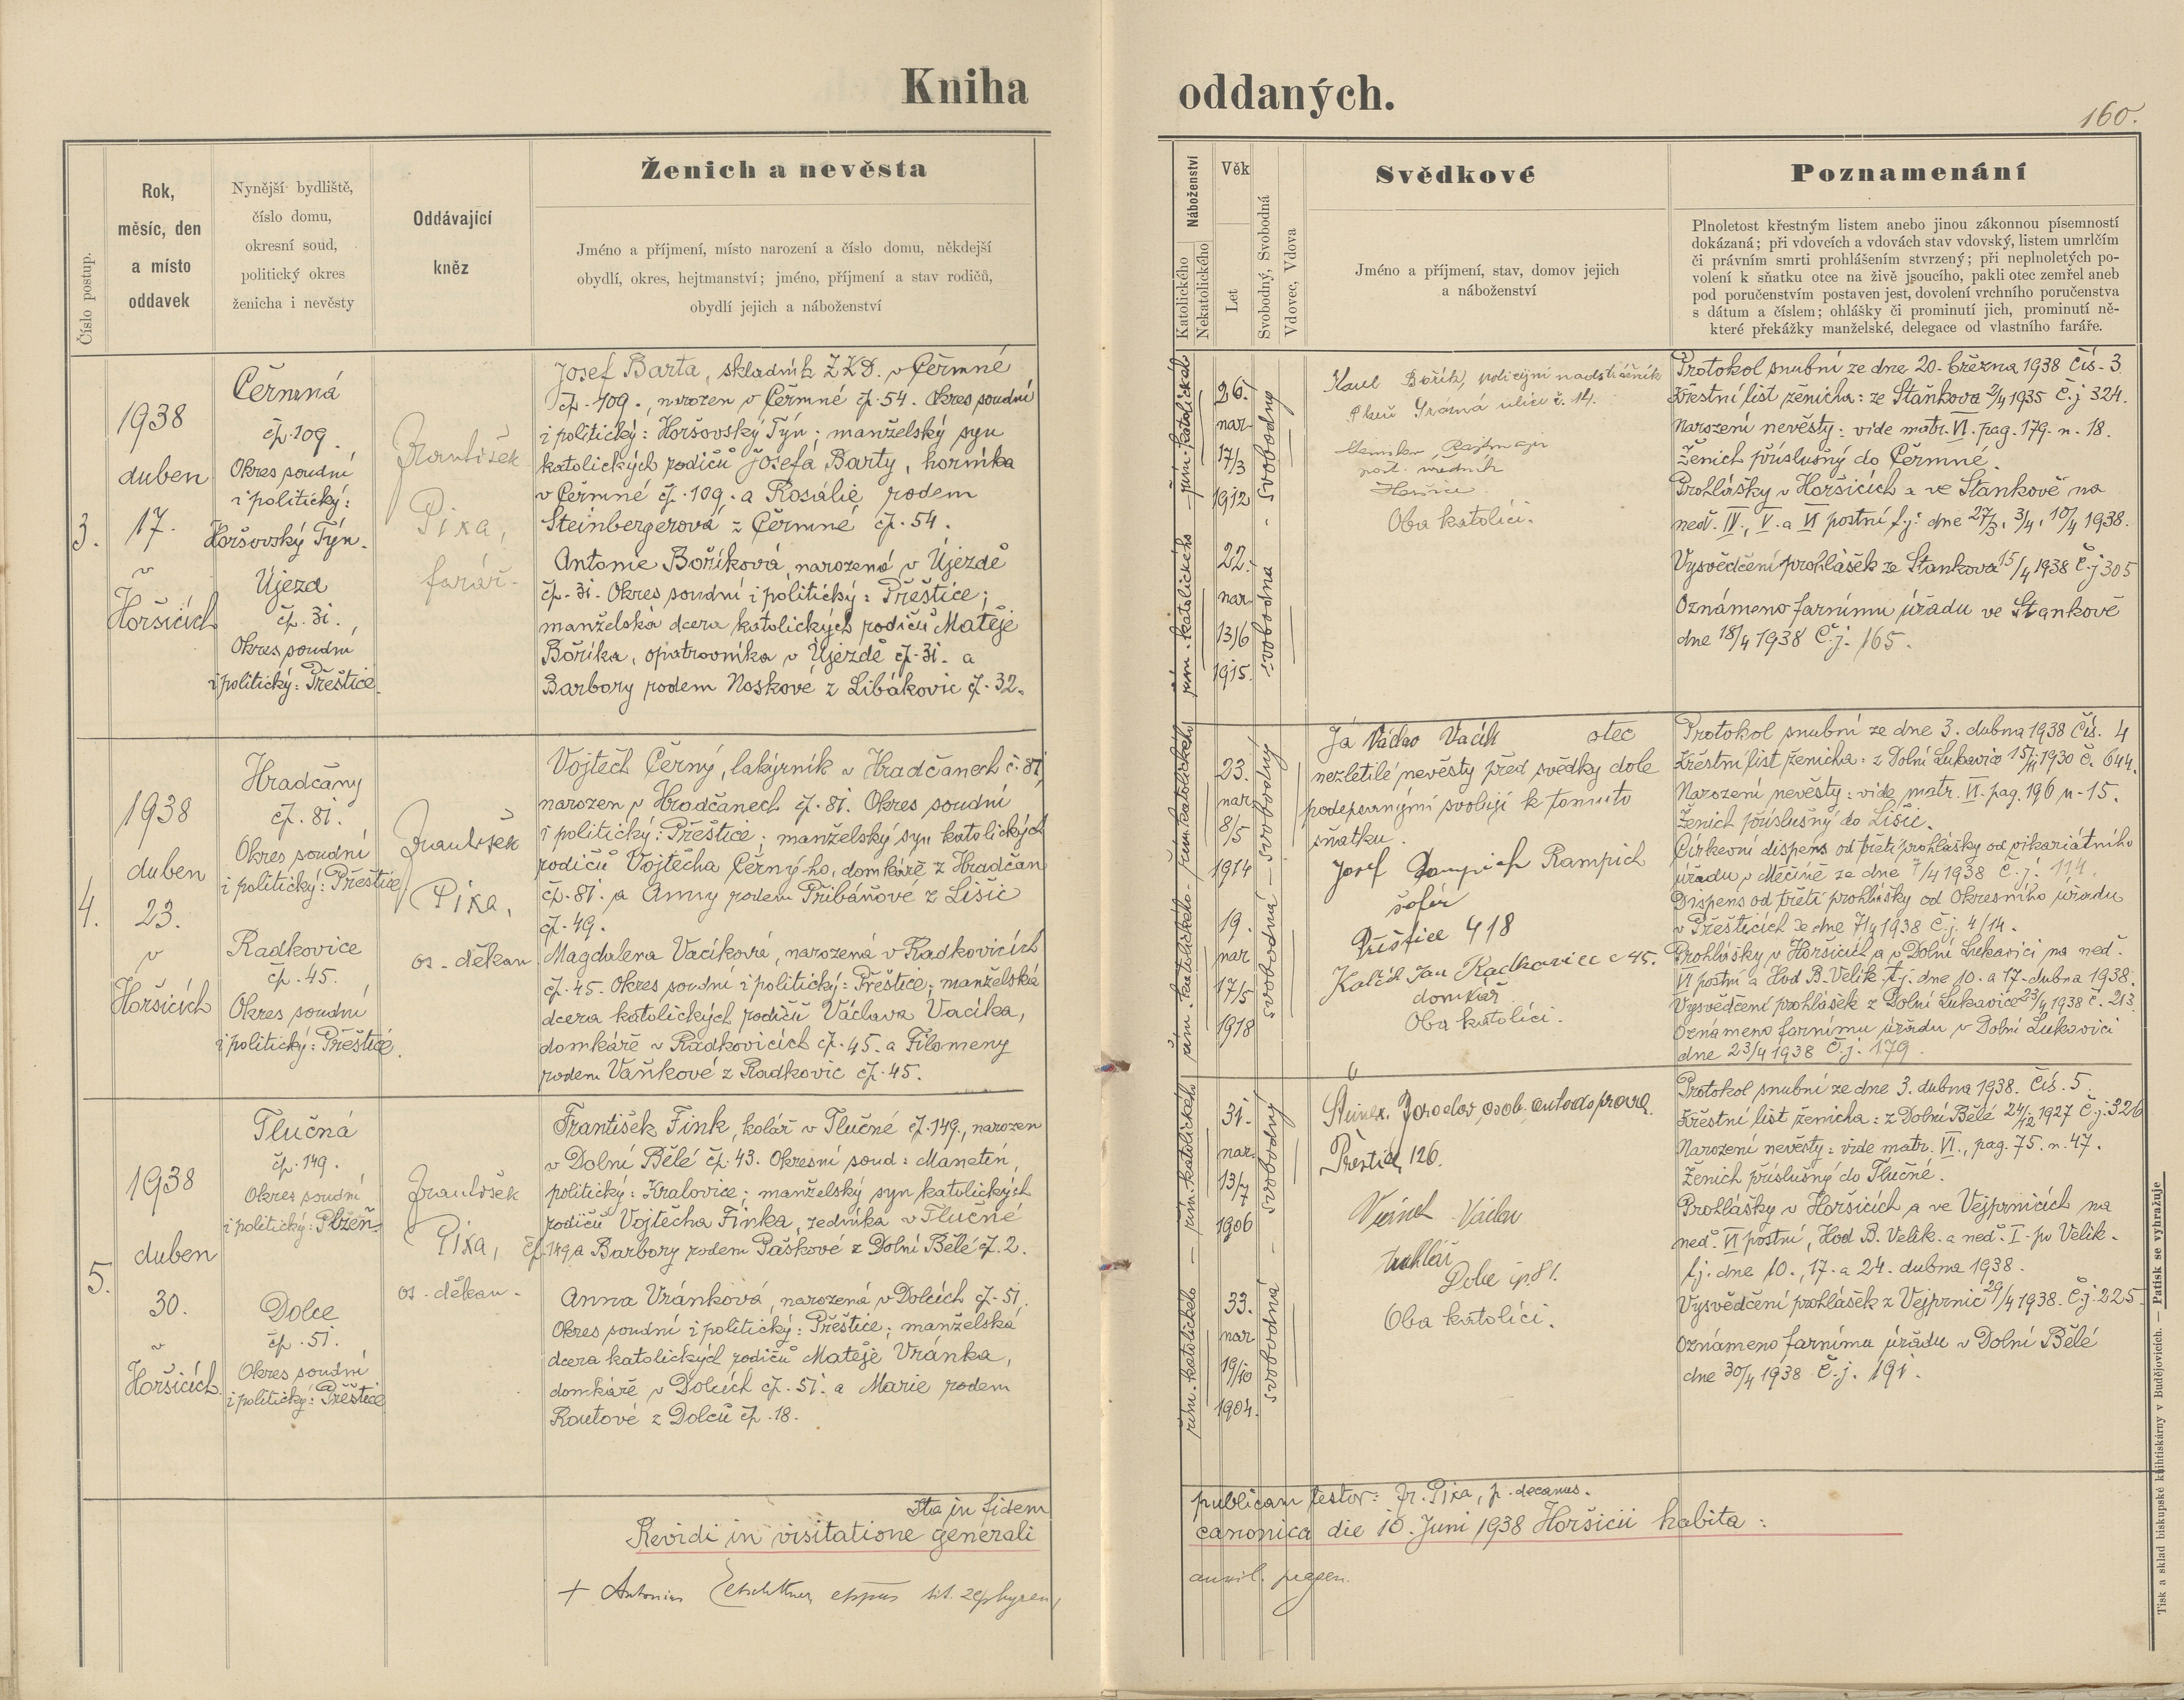 Kniha oddaných.
160.
Číslo postup.
Rok,
měsíc, den
a místo
oddavek
Nynější bydliště,
číslo domu,
okresní soud,
politický okres
ženicha i nevěsty
Oddávající
kněz
Ženich a nevěsta
Jméno a příjmení, místo narození a číslo domu, někdejší
obydlí, okres, hejtmanství; jméno, příjmení a stav rodičů,
obydlí jejich a náboženství
Náboženství
Katolického
Nekatolického
Věk
Let
Svobodný, Svobodná
Vdovec, Vdova
Svědkové
Jméno a příjmení, stav, domov jejich
a náboženství
Poznamenání
Plnoletost křestným listem anebo jinou zákonnou písemností
dokázaná; při vdovcích a vdovách stav vdovský, listem umrlčím
či právním smrti prohlášením stvrzený; při neplnoletých po-
volení k sňatku otce na živě jsoucího, pakli otec zemřel aneb
pod poručenstvím postaven jest, dovolení vrchního poručenstva
s dátum a číslem; ohlášky či prominutí jich, prominutí ně-
které překážky manželské, delegace od vlastního faráře.
3.
1938
duben
17.
v
Horšicích
Čermná
čp. 109.
Okres soudní
i politický:
Horšovský Týn.
Újezd
čp. 31.
Okres soudní
i politický: Přeštice.
František
Pixa,
farář.
Josef Barta, skladník Ž.K.D. v Čermné
čp. 109., narozen v Čermné čp. 54. Okres soudní
i politický: Horšovský Týn; manželský syn
katolických rodičů Josefa Barty, horníka
v Čermné čp. 109. a Rosálie rodem
Steinbergerová z Čermné čp. 54.
Antonie Boříková, narozená v Újezdě
čp. 31. Okres soudní i politický: Přeštice;
manželská dcera katolických rodičů Matěje
Boříka, opatrovníka v Újezdě čp. 31. a
Barbory rodem Noskové z Libákovic čp. 32.
řím. katolického - řím. katolického
26.
nar.
17/3
1912
22.
nar.
13/6
1915.
svobodná - svobodný
Karel Bořík, policejní nadstrážník
Plzeň Srázná ulice č. 14.
post. úředník
Horšice
Oba katolíci.
Protokol snubní ze dne 20. března 1938 Čís. 3
Křestní list ženicha: ze Staňkova 2/4 1935 č.j 324.
Narození nevěsty: vide matr. VI. pag. 179. n. 18.
Ženich příslušný do Čermné.
Prohlášky v Horšicích a ve Staňkově na
neď. IV., V. a VI postní t.j: dne 27/3, 3/4, 10/4 1938.
Vysvědčení prohlášek ze Staňkova 15/4 1938 č.j 305
Oznámeno farnímu úřadu ve Staňkově
dne 18/4 1938 Č.j. 165.
4.
1938
duben
23.
v
Horšicích
Hradčany
čp. 81.
Okres soudní
i politický: Přeštice
Radkovice
čp. 45.
Okres soudní
i politický: Přeštice.
František
Pixa,
os. děkan
Vojtěch Černý, lakýrník v Hradčanech č. 81,
narozen v Hradčanech čp. 81. Okres soudní
i politický: Přeštice; manželský syn katolických
rodičů Vojtěcha Černýho, domkáře z Hradčan
čp. 81. a Anny rodem Přibáňové z Lišic
čp. 49.
Magdalena Vacíková, narozená v Radkovicích
čp. 45. Okres soudní i politický: Přeštice; manželská
dcera katolických rodičů Václava Vacíka,
domkáře v Radkovicích čp. 45. a Filomeny
rodem Vaňkové z Radkovic čp. 45.
řím. katolického - řím. katolického
23.
nar
8/5
1914
19.
nar
17/5
1918
svobodná - svobodný
Já Václav Vacík otec
nezletilé nevěsty před svědky dole
podepsanými svoluji k tomuto
sňatku.
Josef Rampich
šofér
Přeštice 418
Jan Radkovice č 45.
domkář
Oba katolíci.
Protokol snubní ze dne 3. dubna 1938 Čís. 4
Křestní list ženicha: z Dolní Lukavice 15/11 1930 č. 644.
Narození nevěsty: vide matr. VI. pag. 196 n. 15.
Ženich příslušný do Lišic.
Církevní dispens od třetí prohlášky od vikariátního
úřadu v Měčíně ze dne 7/4 1938 č.j. 114.
Dispens od třetí prohlášky od Okresního úřadu
v Přešticích ze dne 7/4 1938 č.j. 4/14.
Prohlášky v Horšicích a v Dolní Lukavici na neď.
VI postní a Hod B. Velik. t.j. dne 10. a 17. dubna 1938.
Vysvědčení prohlášek z Dolní Lukavice 23/4 1938 č. 213
Oznámeno farnímu úřadu v Dolní Lukavici
dne 23/4 1938 Č.j. 179.
5.
1938
duben
30.
v
Horšicích.
Tlučná
čp. 149.
Okres soudní
i politický: Plzeň.
Dolce
čp. 51.
Okres soudní
i politický: Přeštice
František
Pixa,
os. děkan.
František Fink, kolář v Tlučné čp. 149., narozen
v Dolní Bělé čp. 43. Okresní soud: Manetín,
politický: Kralovice; manželský syn katolických
rodičů Vojtěcha Finka, zedníka v Tlučné
čp. 149 a Barbory rodem Paškové z Dolní Bělé čp. 2.
Anna Vránková, narozená v Dolcích čp. 51.
Okres soudní i politický: Přeštice; manželská
dcera katolických rodičů Matěje Vránka,
domkáře v Dolcích čp. 51. a Marie rodem
Routové z Dolců čp. 18.
řím. katolického - řím. katolického
31.
nar.
13/7
1906
33.
nar
19/10
1904.
svobodná - svobodný
osob. autodoprava.
Přeštice, 126.
Václav
truhlář
Dolce čp. 81.
Oba katolíci.
Protokol snubní ze dne 3. dubna 1938. Čís. 5.
Křestní list ženicha: z Dolní Bělé 24/12 1927 č.j. 326
Narození nevěsty: vide matr. VI., pag. 75. n. 47.
Ženich příslušný do Tlučné.
Prohlášky v Horšicích a ve Vejprnicích na
neď. VI postní, Hod B. Velik. a neď. I. po Velik.
t.j. dne 10., 17. a 24. dubna 1938.
Vysvědčení prohlášek z Vejprnic 29/4 1938. č.j. 225.
Oznámeno farnímu úřadu v Dolní Bělé
dne 30/4 1938 Č.j. 191.
Ita in fidem publicam testor: Fr. Pixa, p. decanus.
Revidi in visitatione generali canonica die 10. Juni 1938 Horšicii habita:
+ Antonius eppus tit. zephyren,
Tisk a sklad biskupské knihtiskárny v Budějovicích. — Patisk se vyhražuje